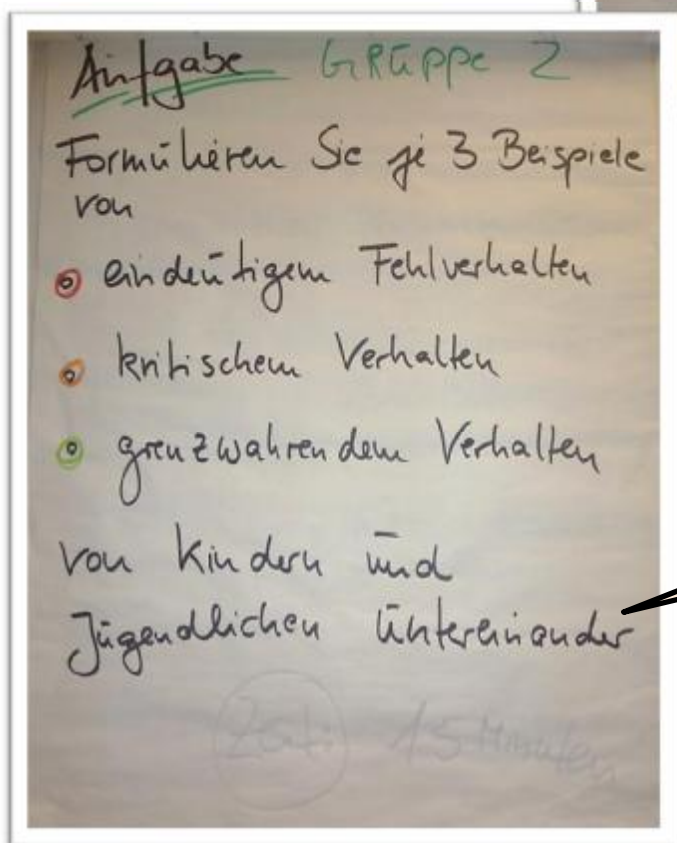 Aufgabe Gruppe 2
Formulieren Sie je 3 Beispiele
von
eindeutigem Fehlverhalten
kritischem Verhalten
grenzwahrendem Verhalten
von Kindern und
Jugendlichen untereinander
Zeit: 15 Minuten